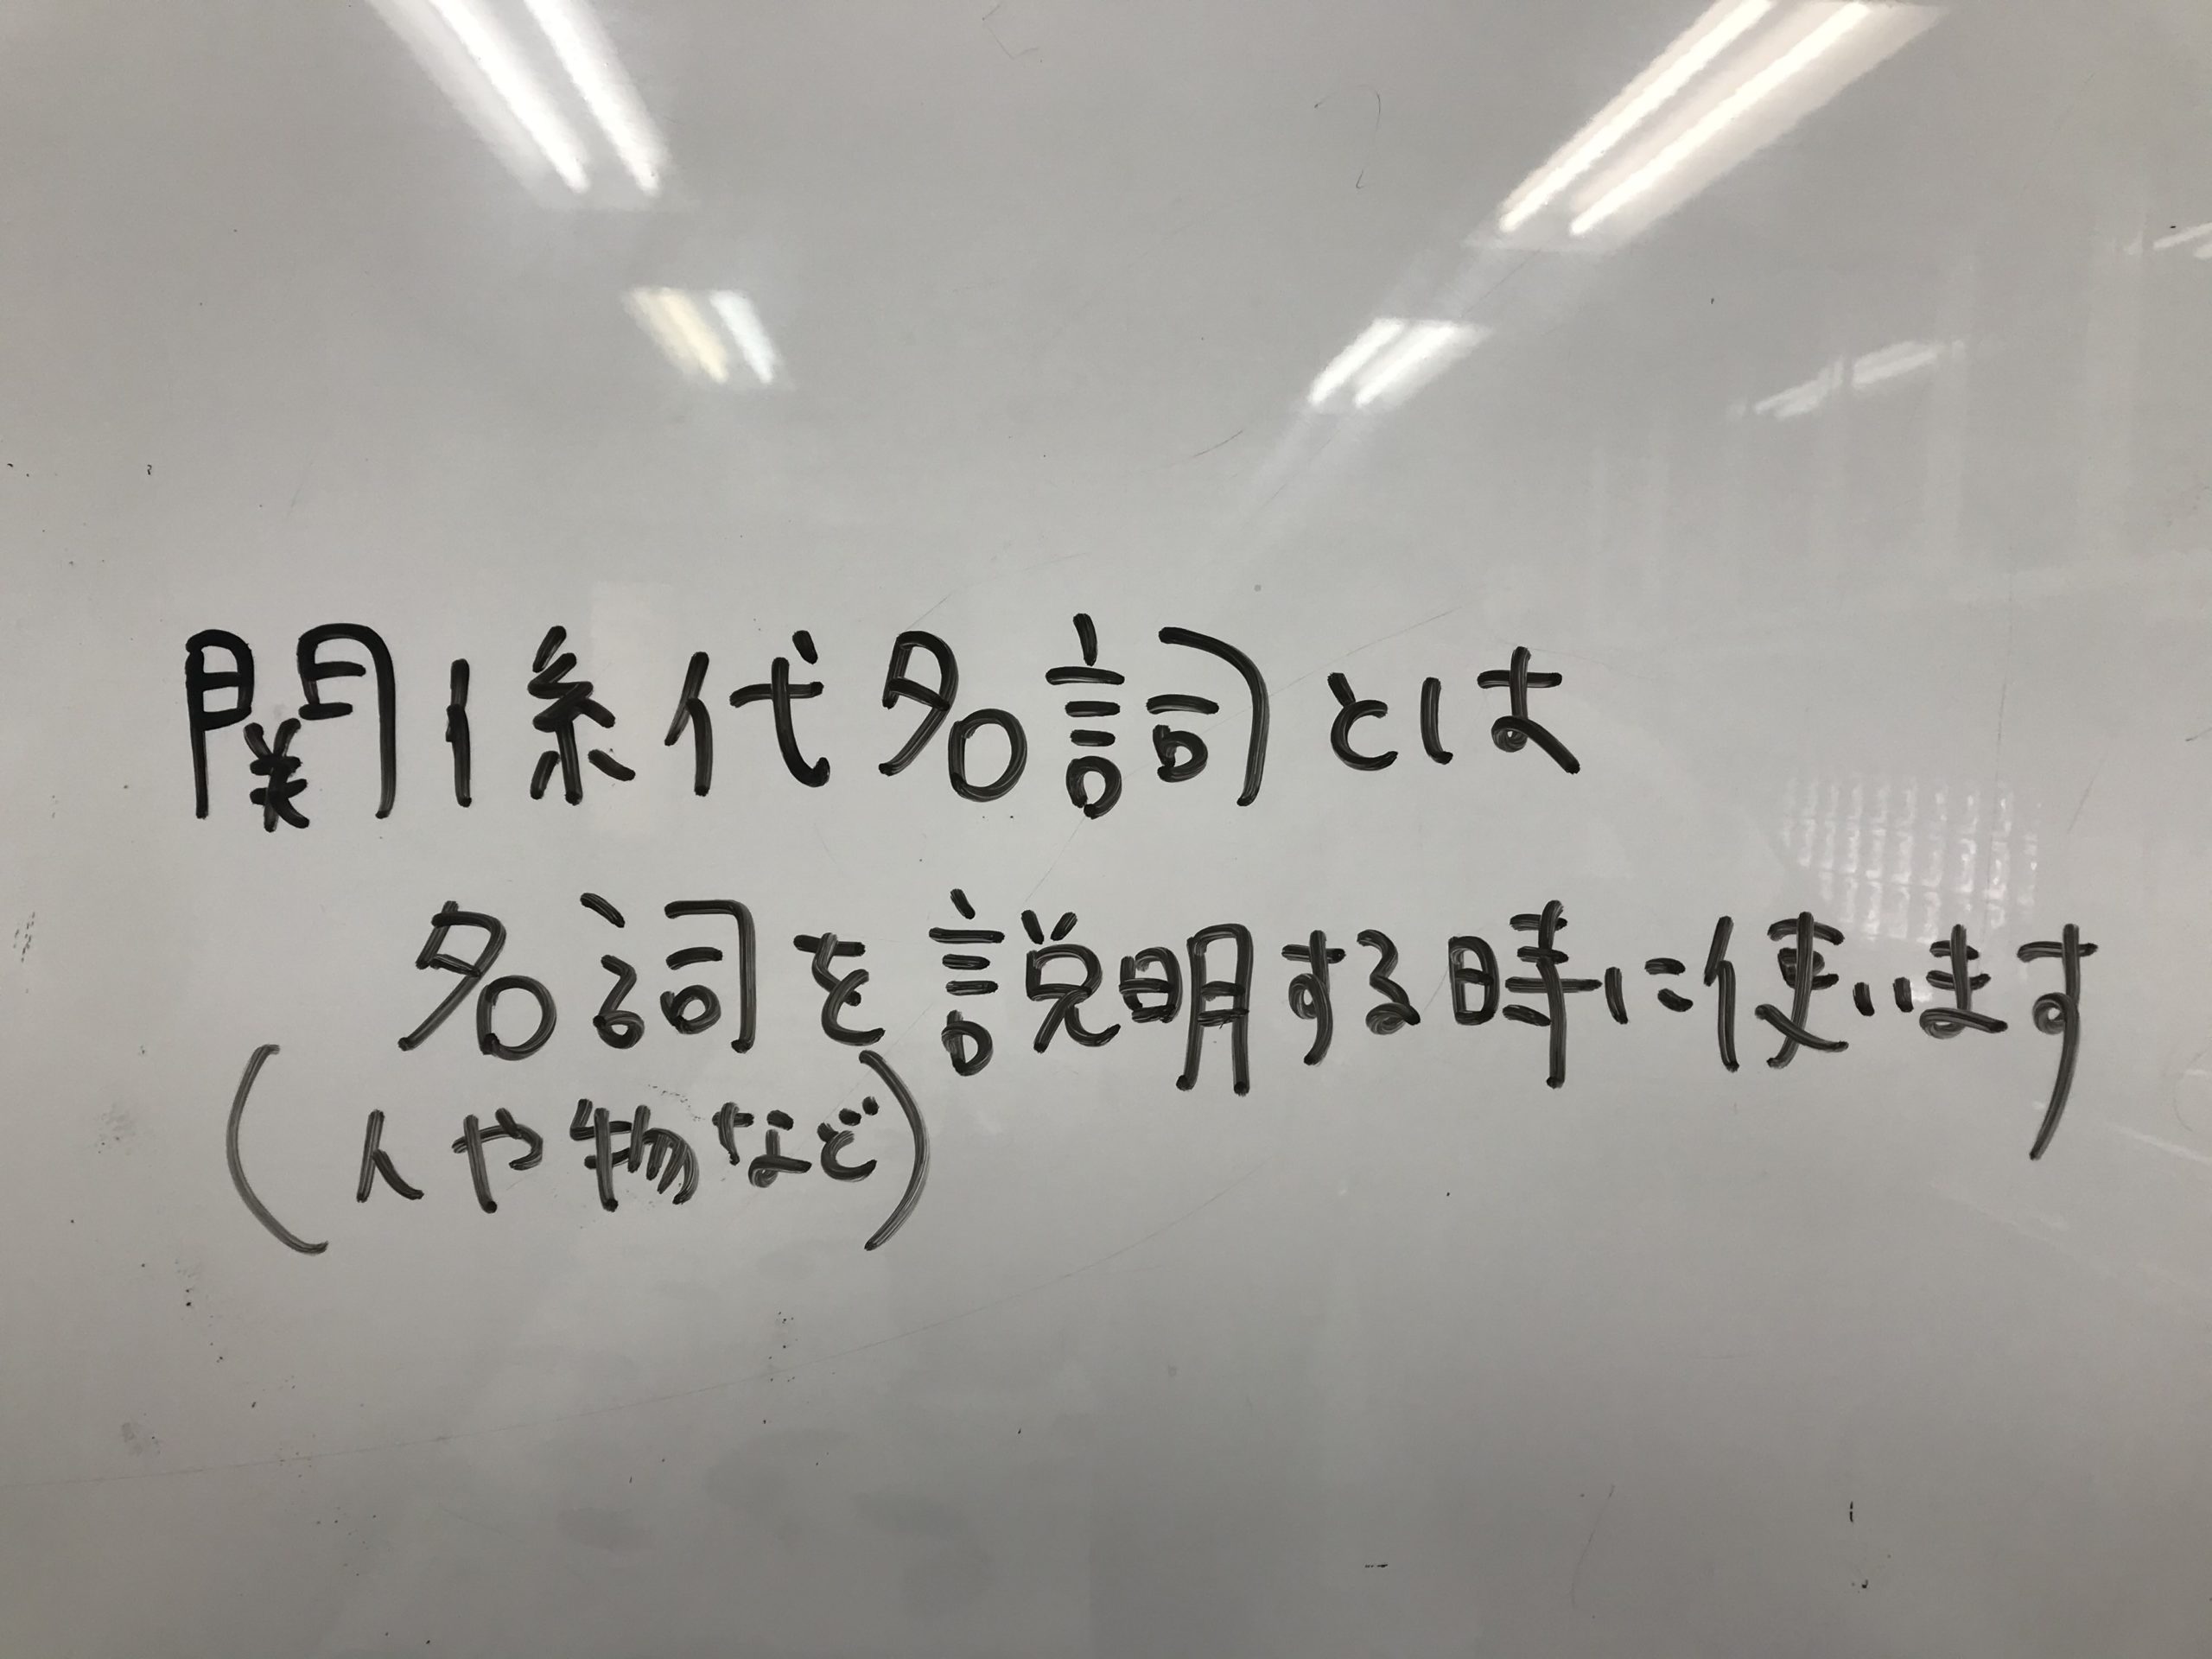 関係代名詞とは
名詞を説明する時に使います
(人や物など)